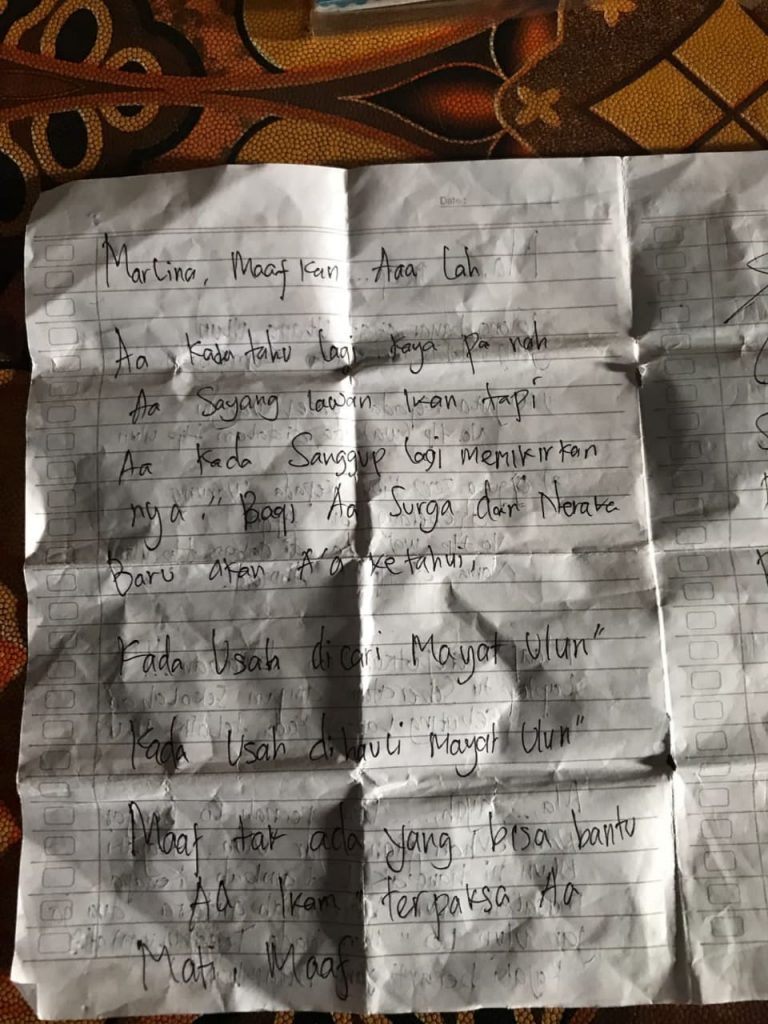 Date:
Marlina, Maafkan Aaa lah
Aa Kada tahu lagi kaya pa nah
Aa Sayang lawan Ikan tapi
Aa Kada Sanggup lagi memikirkan
nya." Bagi Aa Surga dan Neraka
Baru akan Aa ketahui,
Kada Usah dicari Mayat Ulun"
Kada Usah dihauli Mayat Ulun"
Maaf tak ada yang bisa bantu
Aa Ikam terpaksa Aa
Mati, Maaf